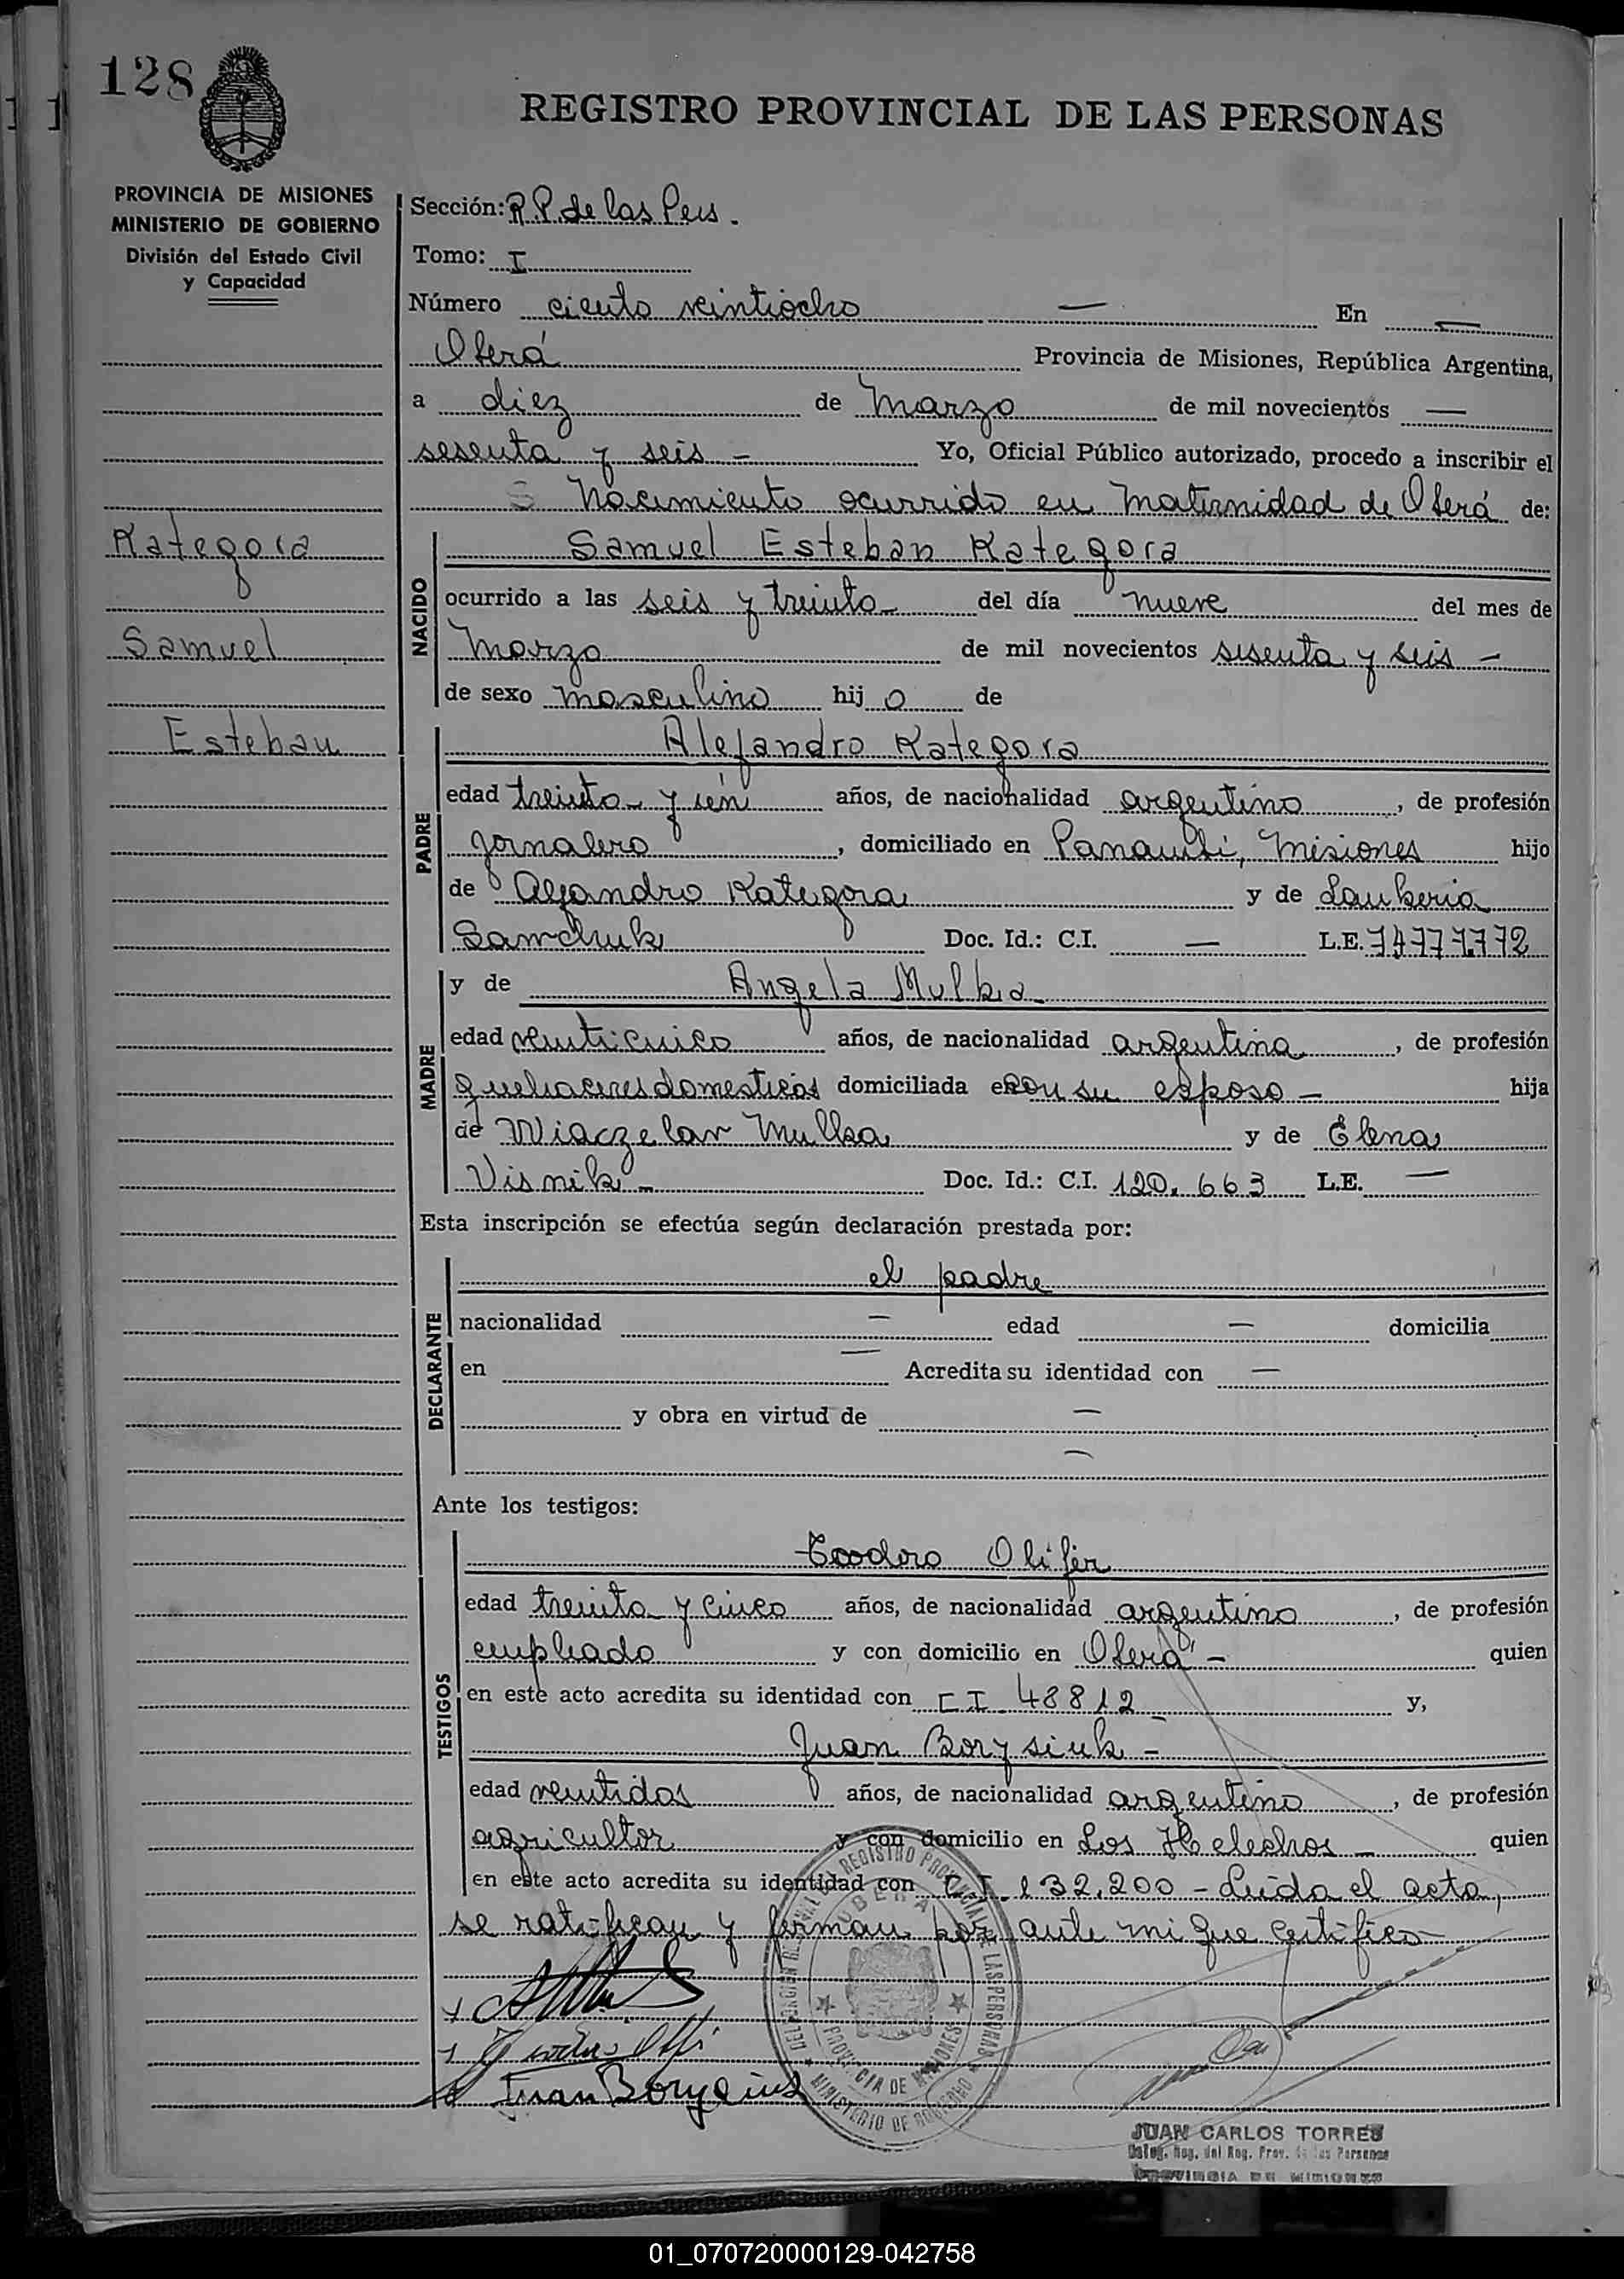 128
REGISTRO PROVINCIAL DE LAS PERSONAS
PROVINCIA DE MISIONES
MINISTERIO DE GOBIERNO
División del Estado Civil
y Capacidad
Kategora
Samuel
Esteban
Sección: R.P. de las Pers.
Tomo: I
Número ciento veintiocho — En —
Oberá Provincia de Misiones, República Argentina,
a diez de Marzo de mil novecientos —
sesenta y seis - Yo, Oficial Público autorizado, procedo a inscribir el
Nacimiento ocurrido en Maternidad de Oberá de:
NACIDO
Samuel Esteban Kategora
ocurrido a las seis y treinta del día nueve del mes de
Marzo de mil novecientos sesenta y seis -
de sexo masculino hijo de
PADRE
Alejandro Kategora
edad treinta y un años, de nacionalidad argentino, de profesión
jornalero, domiciliado en Panambí, Misiones hijo
de Alejandro Kategora y de
Samchuk Doc. Id.: C.I. — L.E.
MADRE
y de Angela Mulka
edad veinticinco años, de nacionalidad argentina, de profesión
quehaceres domesticos domiciliada con su esposo - hija
de Wiaczelav Mulka y de Elena
Visnik - Doc. Id.: C.I. 120.663 L.E. —
Esta inscripción se efectúa según declaración prestada por:
DECLARANTE
el padre
nacionalidad — edad — domicilia
en — Acredita su identidad con —
y obra en virtud de —
—
Ante los testigos:
TESTIGOS
Teodoro Olifer
edad treinta y cinco años, de nacionalidad argentino, de profesión
empleado y con domicilio en Oberá - quien
en este acto acredita su identidad con C I 48812 y,
Juan Borysiuk -
edad veintidos años, de nacionalidad argentino, de profesión
agricultor y con domicilio en Los Helechos - quien
en este acto acredita su identidad con C.I. 132.200 - Leída el acta,
se ratifican y firman por ante mi que certifico
Juan Borysiuk
PROVINCIA DE MISIONES
MINISTERIO DE GOBIERNO
JUAN CARLOS TORRES
Deleg. Reg. del Reg. Prov. de las Personas
PROVINCIA DE MISIONES
01_070720000129-042758